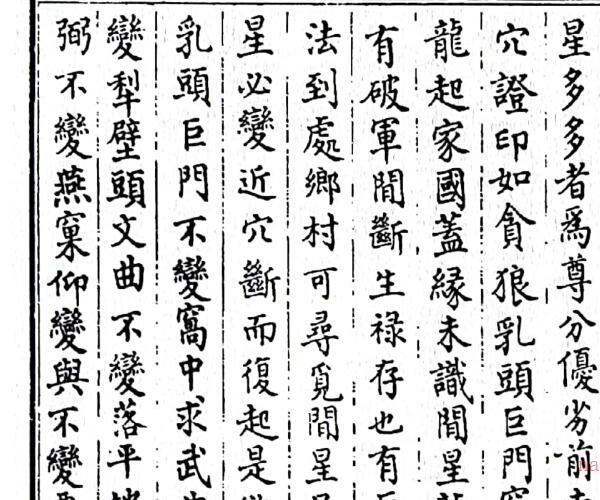 星多多者爲尊分優劣前
穴證印如貪狼乳頭巨門
龍起家國蓋緣未識間星
有破軍間斷生祿存也有
法到處鄉村可尋覓間星
星必變近穴斷而復起是
乳頭巨門不變窩中求武
變犁壁頭文曲不變落平
弼不變燕窠仰變與不變
na